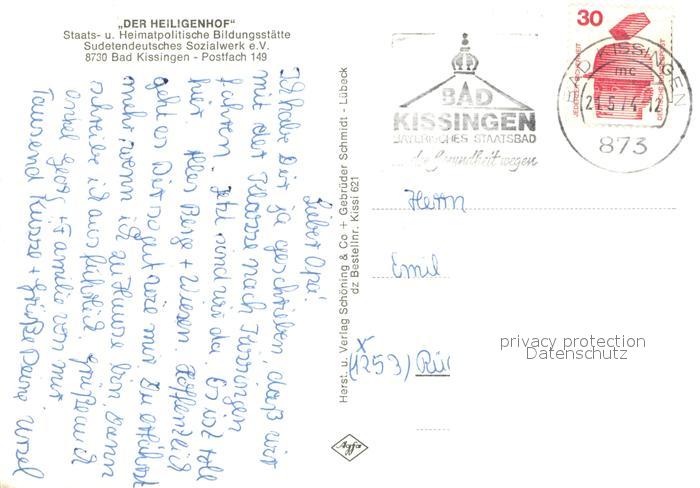 „DER HEILIGENHOF"
Staats- u. Heimatpolitische Bildungsstätte
Sudetendeutsches Sozialwerk e.V.
8730 Bad Kissingen - Postfach 149
Lieber Opa!
Ich habe Dir ja geschrieben, daß wir
mit der Klasse nach Kissingen
fahren. Jetzt sind wir da. Es ist toll
hier. Alles Berge + Wiesen. Hoffentlich
geht es Dir so gut wie mir.
mehr, wenn ich zu Hause bin, dann
schreibe ich ausführlich. Grüße
Onkel Georg + Familie von mir
Tausend Küsse + Grüße Deine
Herst. u. Verlag Schöning & Co + Gebrüder Schmidt - Lübeck
dz Bestellnr. Kissi 621
Agfa
BAD
KISSINGEN
BAYERISCHES STAATSBAD
... der Gesundheit wegen
30
JEDERZEIT SICHERHEIT
DEUTSCHE BUNDESPOST
BAD KISSINGEN
mc
21.5.74-12
873
Herrn
Emil
(1253) Rü
privacy protection
Datenschutz